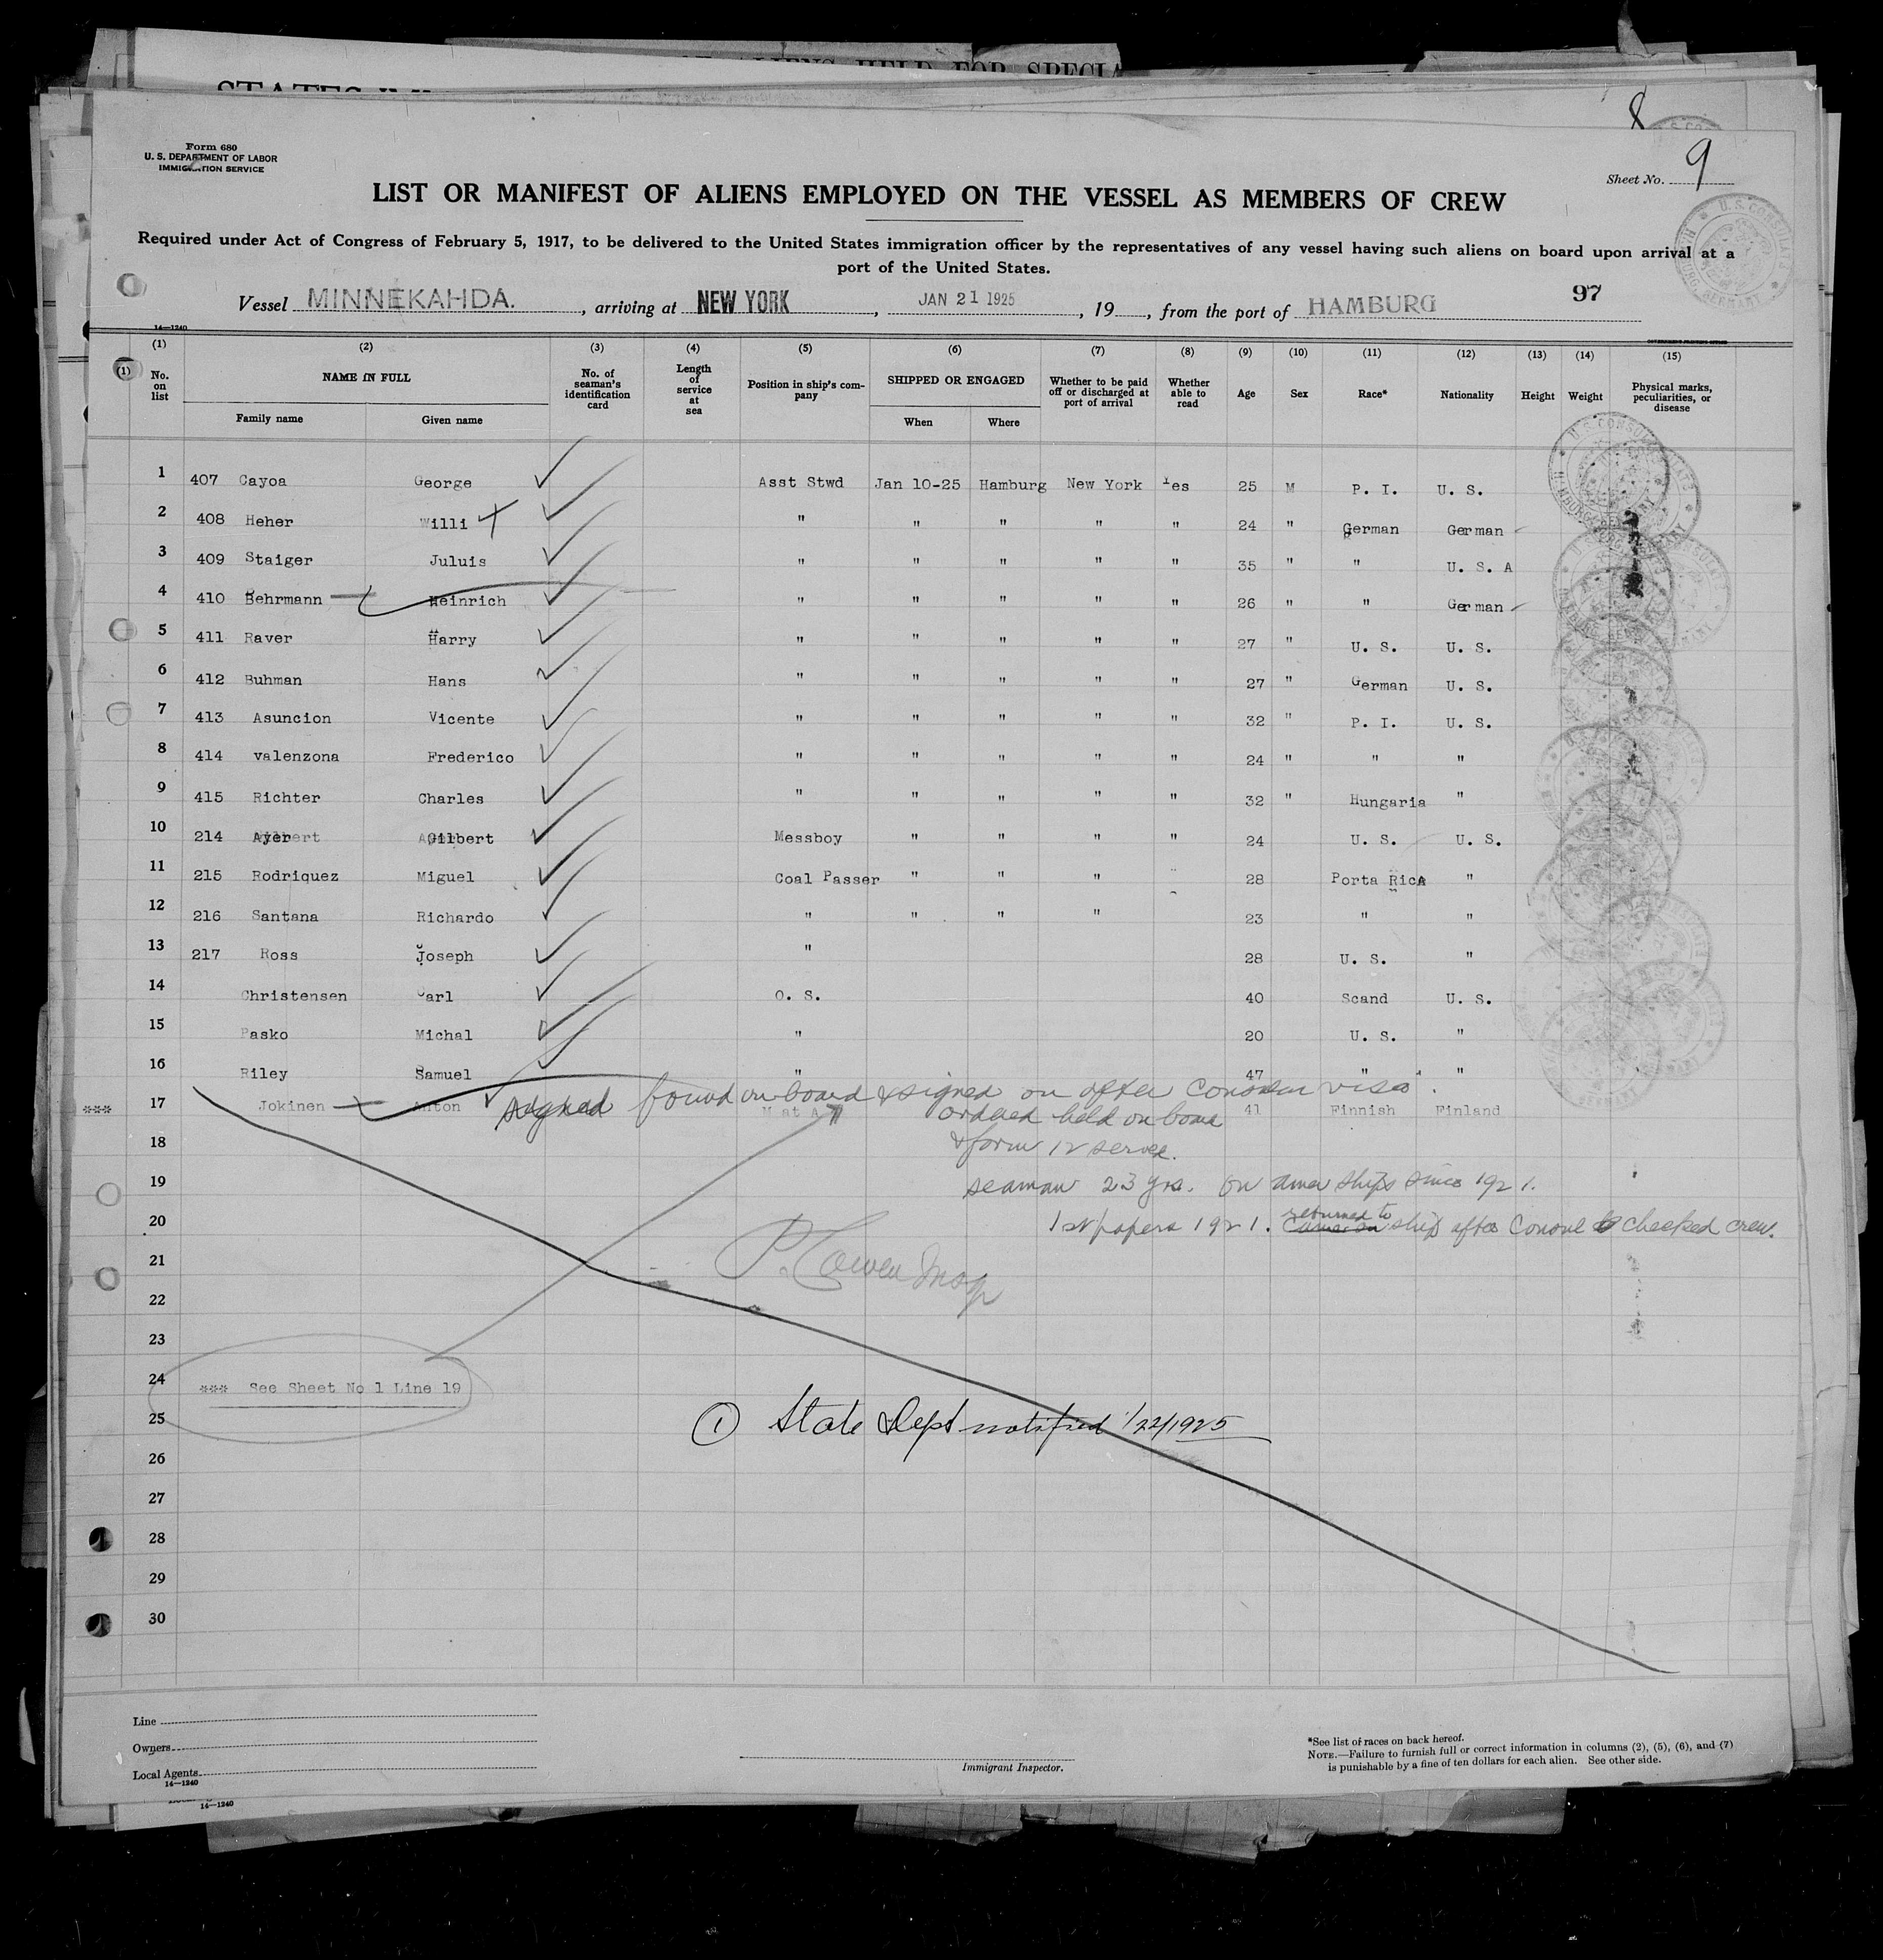 ALIENS HELD FOR SPECIA
8
Form 680
U. S. DEPARTMENT OF LABOR
IMMIGRATION SERVICE
Sheet No. 9
LIST OR MANIFEST OF ALIENS EMPLOYED ON THE VESSEL AS MEMBERS OF CREW
Required under Act of Congress of February 5, 1917, to be delivered to the United States immigration officer by the representatives of any vessel having such aliens on board upon arrival at a
port of the United States.
Vessel MINNEKAHDA. , arriving at NEW YORK , JAN 21 1925 , 19 , from the port of HAMBURG 97
14—1240
(1) (1) (2) (3) (4) (5) (6) (7) (8) (9) (10) (11) (12) (13) (14) (15)
No. on list NAME IN FULL Family name Given name No. of seaman's identification card Length of service at sea Position in ship's company SHIPPED OR ENGAGED When Where Whether to be paid off or discharged at port of arrival Whether able to read Age Sex Race* Nationality Height Weight Physical marks, peculiarities, or disease
1 407 Cayoa George Asst Stwd Jan 10-25 Hamburg New York Yes 25 M P. I. U. S.
2 408 Heher Willi " " " " " 24 " German German
3 409 Staiger Juluis " " " " " 35 " " U. S. A
4 410 Behrmann Heinrich " " " " " 26 " " German
5 411 Raver Harry " " " " " 27 " U. S. U. S.
6 412 Buhman Hans " " " " " 27 " German U. S.
7 413 Asuncion Vicente " " " " " 32 " P. I. U. S.
8 414 valenzona Frederico " " " " " 24 " " "
9 415 Richter Charles " " " " " 32 " Hungaria "
10 214 Ayer Gilbert Messboy " " " " 24 U. S. U. S.
11 215 Rodriquez Miguel Coal Passer " " " " 28 Porta Rica "
12 216 Santana Richardo " " " " 23 " "
13 217 Ross Joseph " 28 U. S. "
14 Christensen Carl O. S. 40 Scand U. S.
15 Pasko Michal " 20 U. S. "
16 Riley Samuel " 47 " "
signed found on board & signed on after Consular visa.
*** 17 Jokinen Anton M at A 41 Finnish Finland
ordered held on board
18 & form 12 served.
19 seaman 23 yrs. on Amer ships since 1921.
20 1st papers 1921. returned to ship after Consul checked crew.
21
22
23
24 *** See Sheet No 1 Line 19
25 ① State Dept notified 1/22/1925
26
27
28
29
30
Line
Owners
Local Agents
14—1240
Immigrant Inspector.
*See list of races on back hereof.
NOTE.—Failure to furnish full or correct information in columns (2), (5), (6), and (7)
is punishable by a fine of ten dollars for each alien. See other side.
14—1240